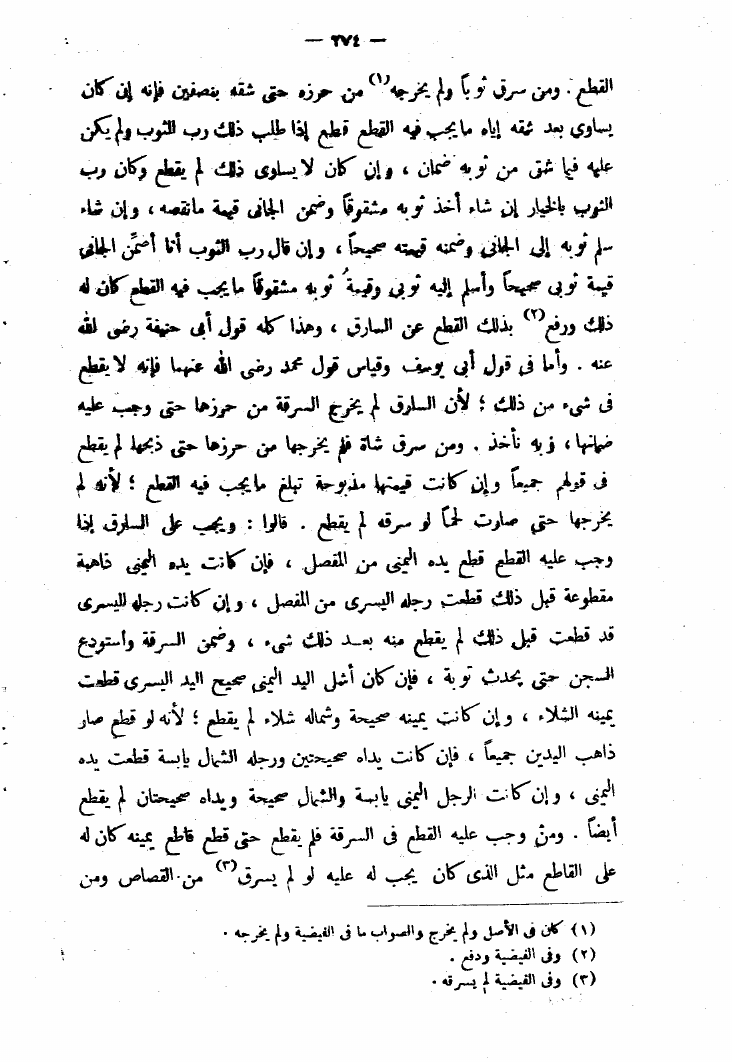 — ٢٧٤ —
القطع . ومن سرق ثوباً ولم يخرجه(١) من حرزه حتى شقه بنصفين فإنه إن كان
يساوى بعد شقه إياه ما يجب فيه القطع قطع إذا طلب ذلك رب الثوب ولم يكن
عليه فيما شق من ثوبه ضمان ، وإن كان لا يساوى ذلك لم يقطع وكان رب
الثوب بالخيار إن شاء أخذ ثوبه مشقوقاً وضمن الجانى قيمة ما نقصه ، وإن شاء
سلم ثوبه إلى الجانى وضمنه قيمته صحيحاً ، وإن قال رب الثوب أنا أضمِّن الجانى
قيمة ثوبى صحيحاً وأسلم إليه ثوبى وقيمة ثوبه مشقوقاً ما يجب فيه القطع كان له
ذلك ورفع(٢) بذلك القطع عن السارق ، وهذا كله قول أبى حنيفة رضى الله
عنه . وأما فى قول أبى يوسف وقياس قول محمد رضى الله عنهما فإنه لا يقطع
فى شىء من ذلك ؛ لأن السارق لم يخرج السرقة من حرزها حتى وجب عليه
ضمانها ، وبه نأخذ . ومن سرق شاة فلم يخرجها من حرزها حتى ذبحها لم يقطع
فى قولهم جميعاً وإن كانت قيمتها مذبوحة تبلغ ما يجب فيه القطع ؛ لأنه لم
يخرجها حتى صارت لحماً لو سرقه لم يقطع . قالوا : ويجب على السارق إذا
وجب عليه القطع قطع يده اليمنى من المفصل ، فإن كانت يده اليمنى ذاهبة
مقطوعة قبل ذلك قطعت رجله اليسرى من المفصل ، وإن كانت رجله اليسرى
قد قطعت قبل ذلك لم يقطع منه بعد ذلك شىء ، وضمن السرقة وأستودع
السجن حتى يحدث توبة ، فإن كان أشل اليد اليمنى صحيح اليد اليسرى قطعت
يمينه الشلاء ، وإن كانت يمينه صحيحة وشماله شلاء لم يقطع ؛ لأنه لو قطع صار
ذاهب اليدين جميعاً ، فإن كانت يداه صحيحتين ورجله الشمال يابسة قطعت يده
اليمنى ، وإن كانت الرجل اليمنى يابسة والشمال صحيحة ويداه صحيحتان لم يقطع
أيضاً . ومن وجب عليه القطع فى السرقة فلم يقطع حتى قطع قاطع يمينه كان له
على القاطع مثل الذى كان يجب له عليه لو لم يسرق(٣) من القصاص ومن
(١) كان فى الأصل ولم يخرج والصواب ما فى الفيضية ولم يخرجه .
(٢) وفى الفيضية ودفع .
(٣) وفى الفيضية لم يسرقه .